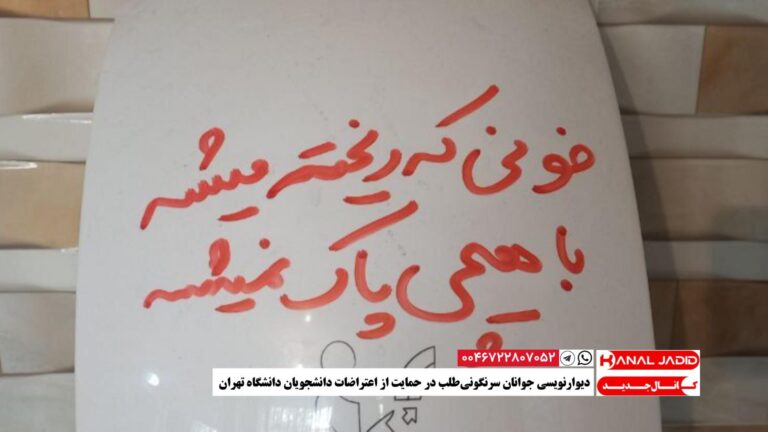 خونی که ریخته میشه
با هیچی پاک نمیشه
۰۰۴۶۷۲۲۸۰۷۰۵۲
KANAL JADID
کانال جدید
دیوارنویسی جوانان سرنگونی‌طلب در حمایت از اعتراضات دانشجویان دانشگاه تهران